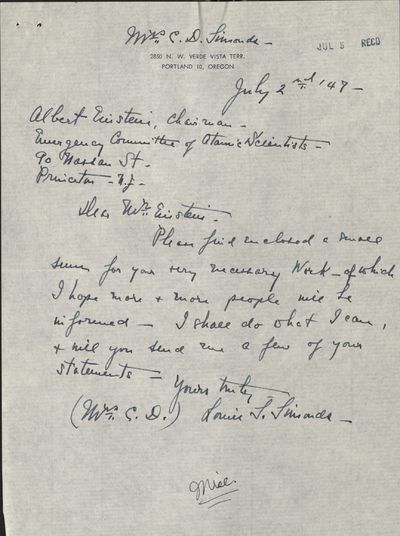 Mrs C. D. Simonds -
2850 N. W. VERDE VISTA TERR.
PORTLAND 10, OREGON
JUL 5 RECD
July 2nd '47 -
Albert Einstein, Chairman -
Emergency Committee of Atomic Scientists -
90 Nassau St -
Princeton - N.J. -
Dear Mr. Einstein -
Please find enclosed a small
sum for your very necessary Work - of which
I hope more + more people will be
informed - I shall do what I can,
+ will you send me a few of your
statements - 
Yours truly -
(Mrs C. D.) Louise S. Simonds -